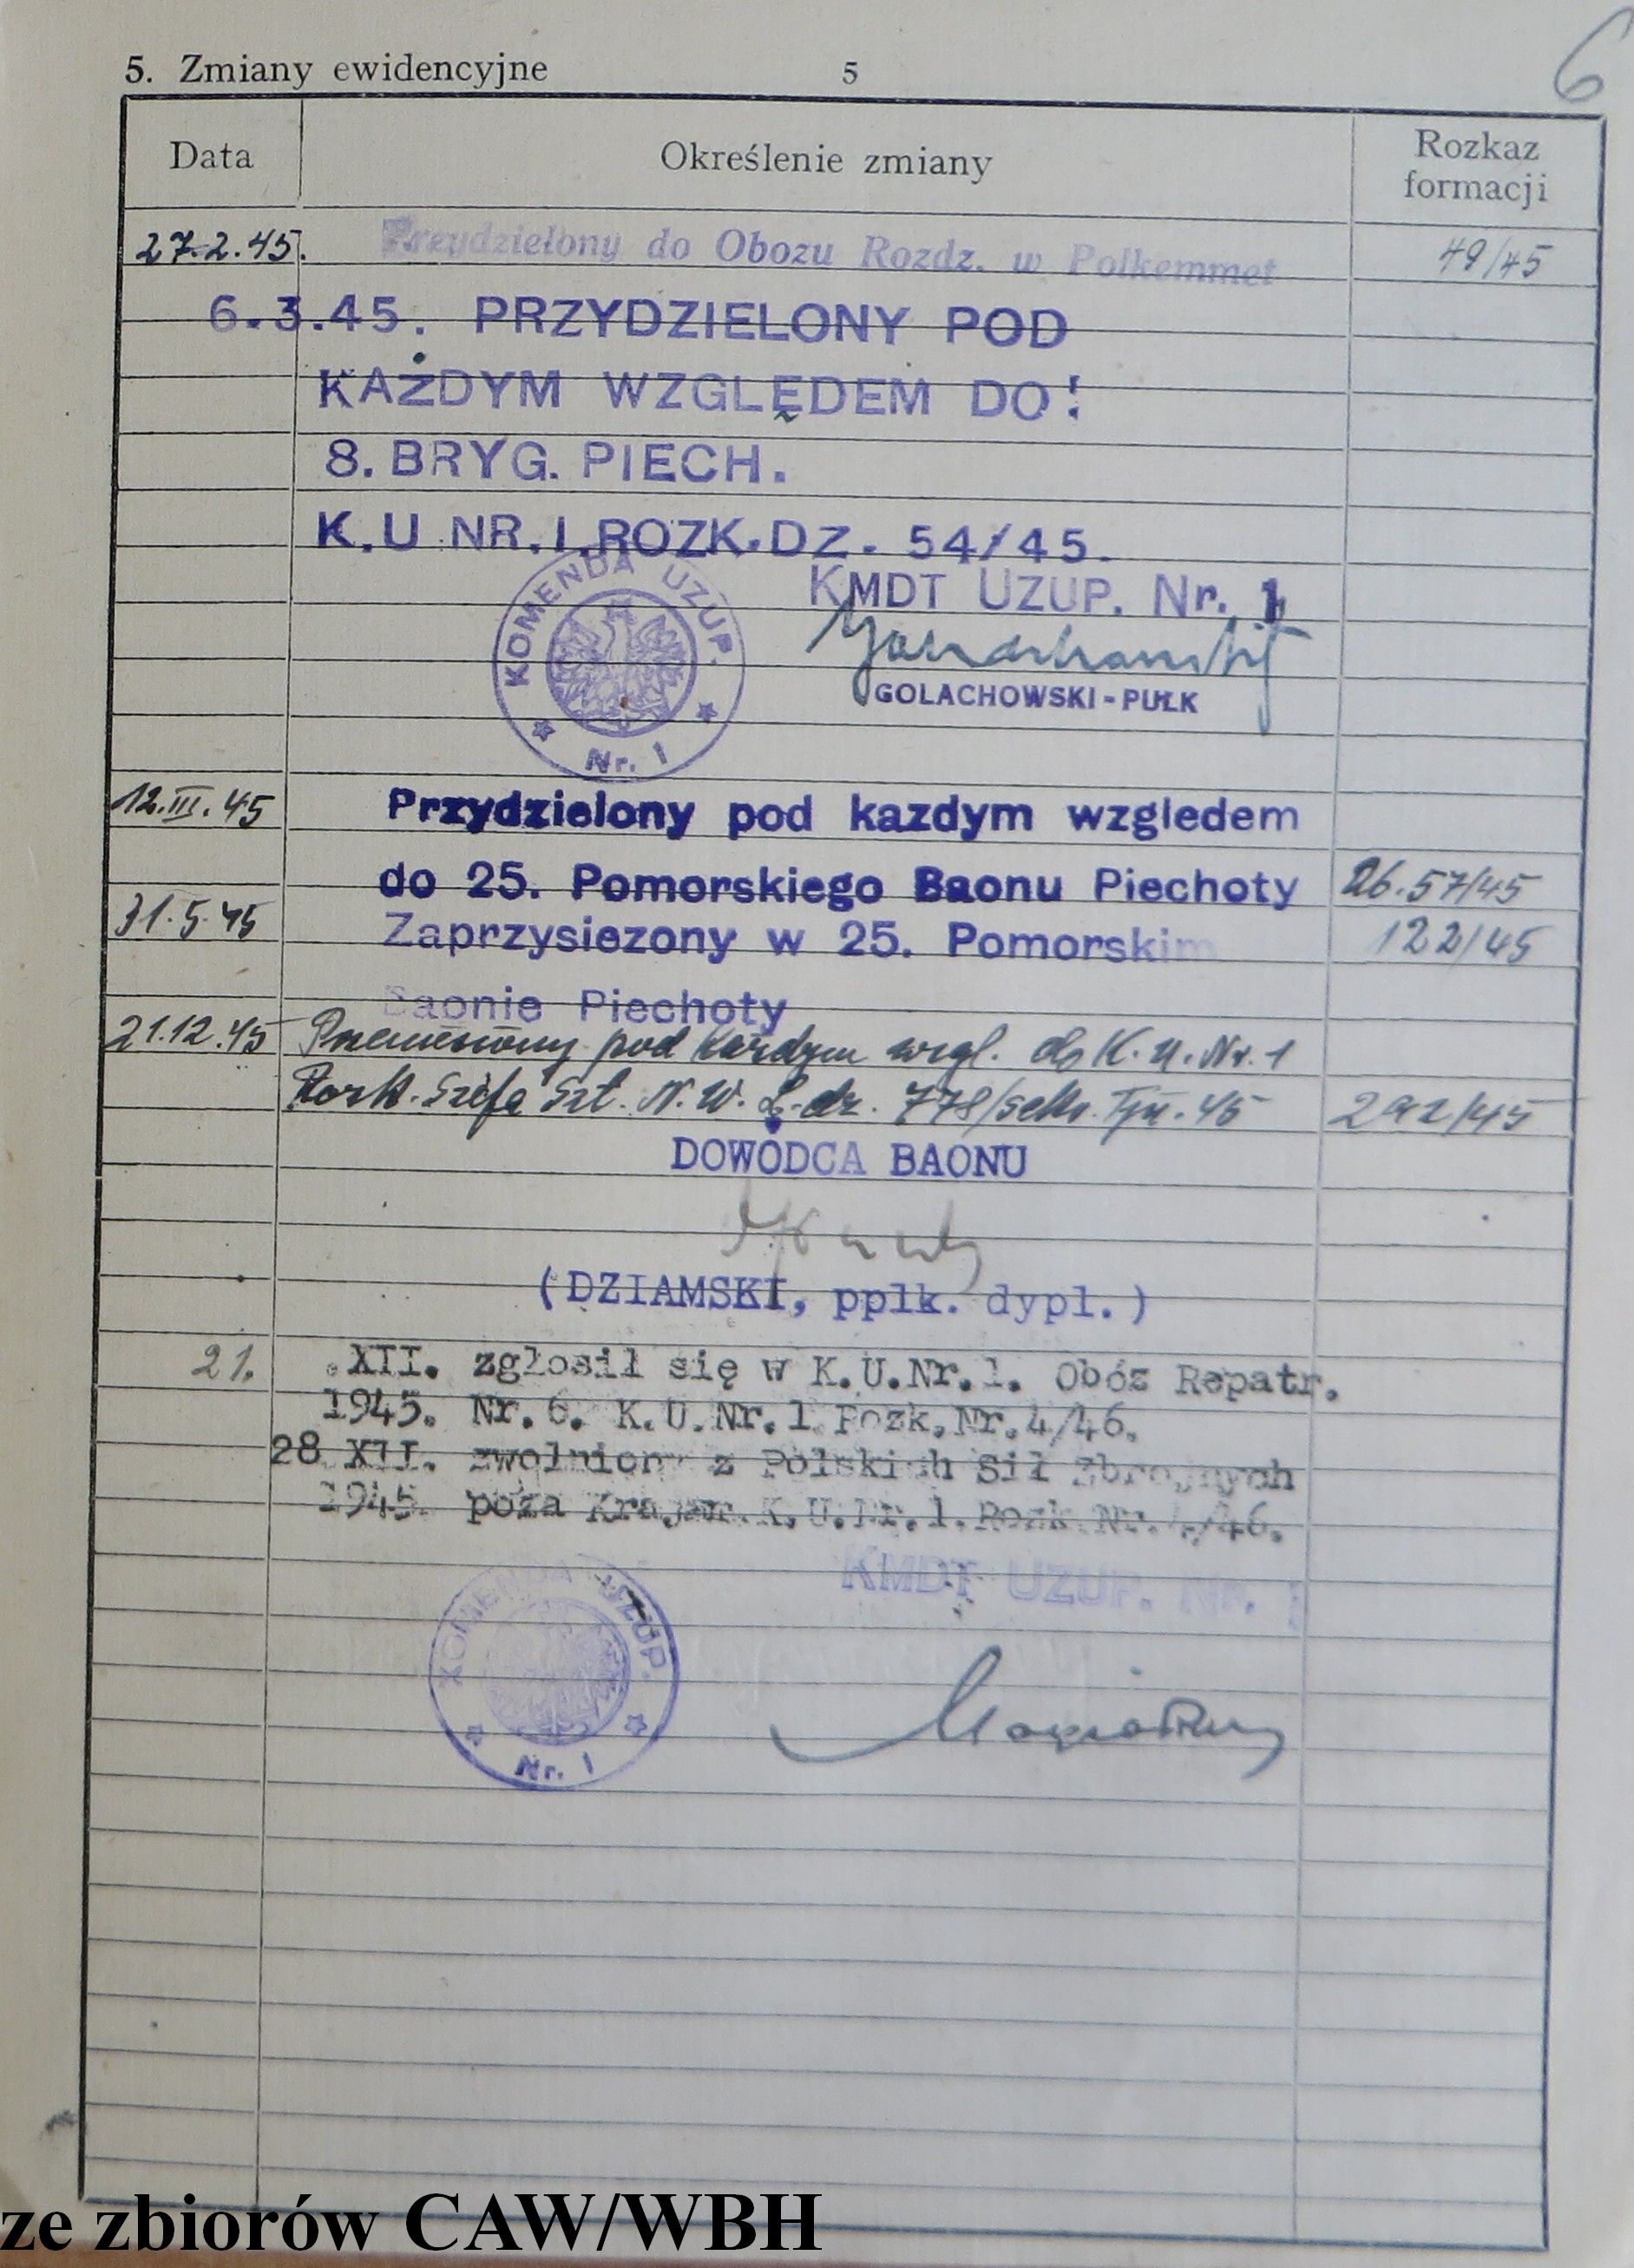 6
5. Zmiany ewidencyjne 5
Data Określenie zmiany Rozkaz formacji
27.2.45. Przydzielony do Obozu Rozdz. w Polkemmet 49/45
6.3.45. PRZYDZIELONY POD
KAŻDYM WZGLĘDEM DO:
8. BRYG. PIECH.
K.U NR.I.ROZK.DZ. 54/45.
KMDT UZUP. Nr. 1
KOMENDA UZUP. Nr. 1
GOLACHOWSKI-PUŁK
12.III.45 Przydzielony pod kazdym wzgledem
do 25. Pomorskiego Baonu Piechoty 57/45
31.5.45 Zaprzysiezony w 25. Pomorskim 122/45
Baonie Piechoty
21.12.45 Przeniesiony pod każdym wzgl. do K.U.Nr.1
Rozk. Szefa Szt. N.W. L.dz. 778/ 45 292/45
DOWÓDCA BAONU
(DZIAMSKI, ppłk. dypl.)
21. .XII. zgłosił się w K.U.Nr.1. Obóz Repatr.
1945. Nr.6. K.U.Nr.1 Rozk.Nr.4/46.
28 XII. zwolniony z Polskich Sił Zbrojnych
1945. poza Krajem. K.U.Nr.1. Rozk Nr. /46.
KMDT UZUP. Nr. 1
KOMENDA UZUP. Nr. 1
ze zbiorów CAW/WBH